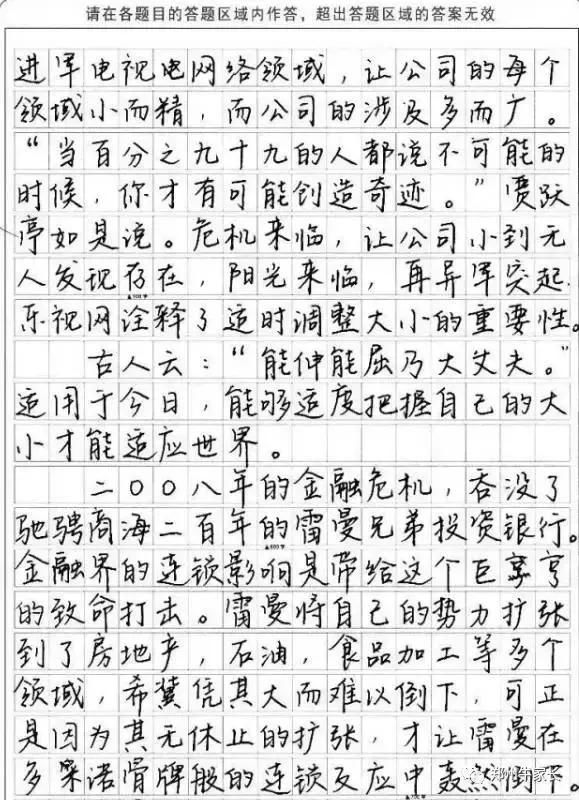 请在各题目的答题区域内作答，超出答题区域的答案无效
进军电视电网络领域，让公司的每个
领域小而精，而公司的涉及多而广。
“当百分之九十九的人都说不可能的
时候，你才有可能创造奇迹。”贾跃
亭如是说。危机来临，让公司小到无
人发现存在，阳光来临，再异军突起，
乐视网诠释了适时调整大小的重要性。
古人云：“能伸能屈乃大丈夫。”
适用于今日，能够适度把握自己的大
小才能适应世界。
二〇〇八年的金融危机，吞没了
驰骋商海二百年的雷曼兄弟投资银行。
金融界的连锁影响是带给这个巨亨
的致命打击。雷曼将自己的势力扩张
到了房地产，石油，食品加工等多个
领域，希冀凭其大而难以倒下，可正
是因为其无休止的扩张，才让雷曼在
多米诺骨牌般的连锁反应中轰然倒下。
郑州牛家长